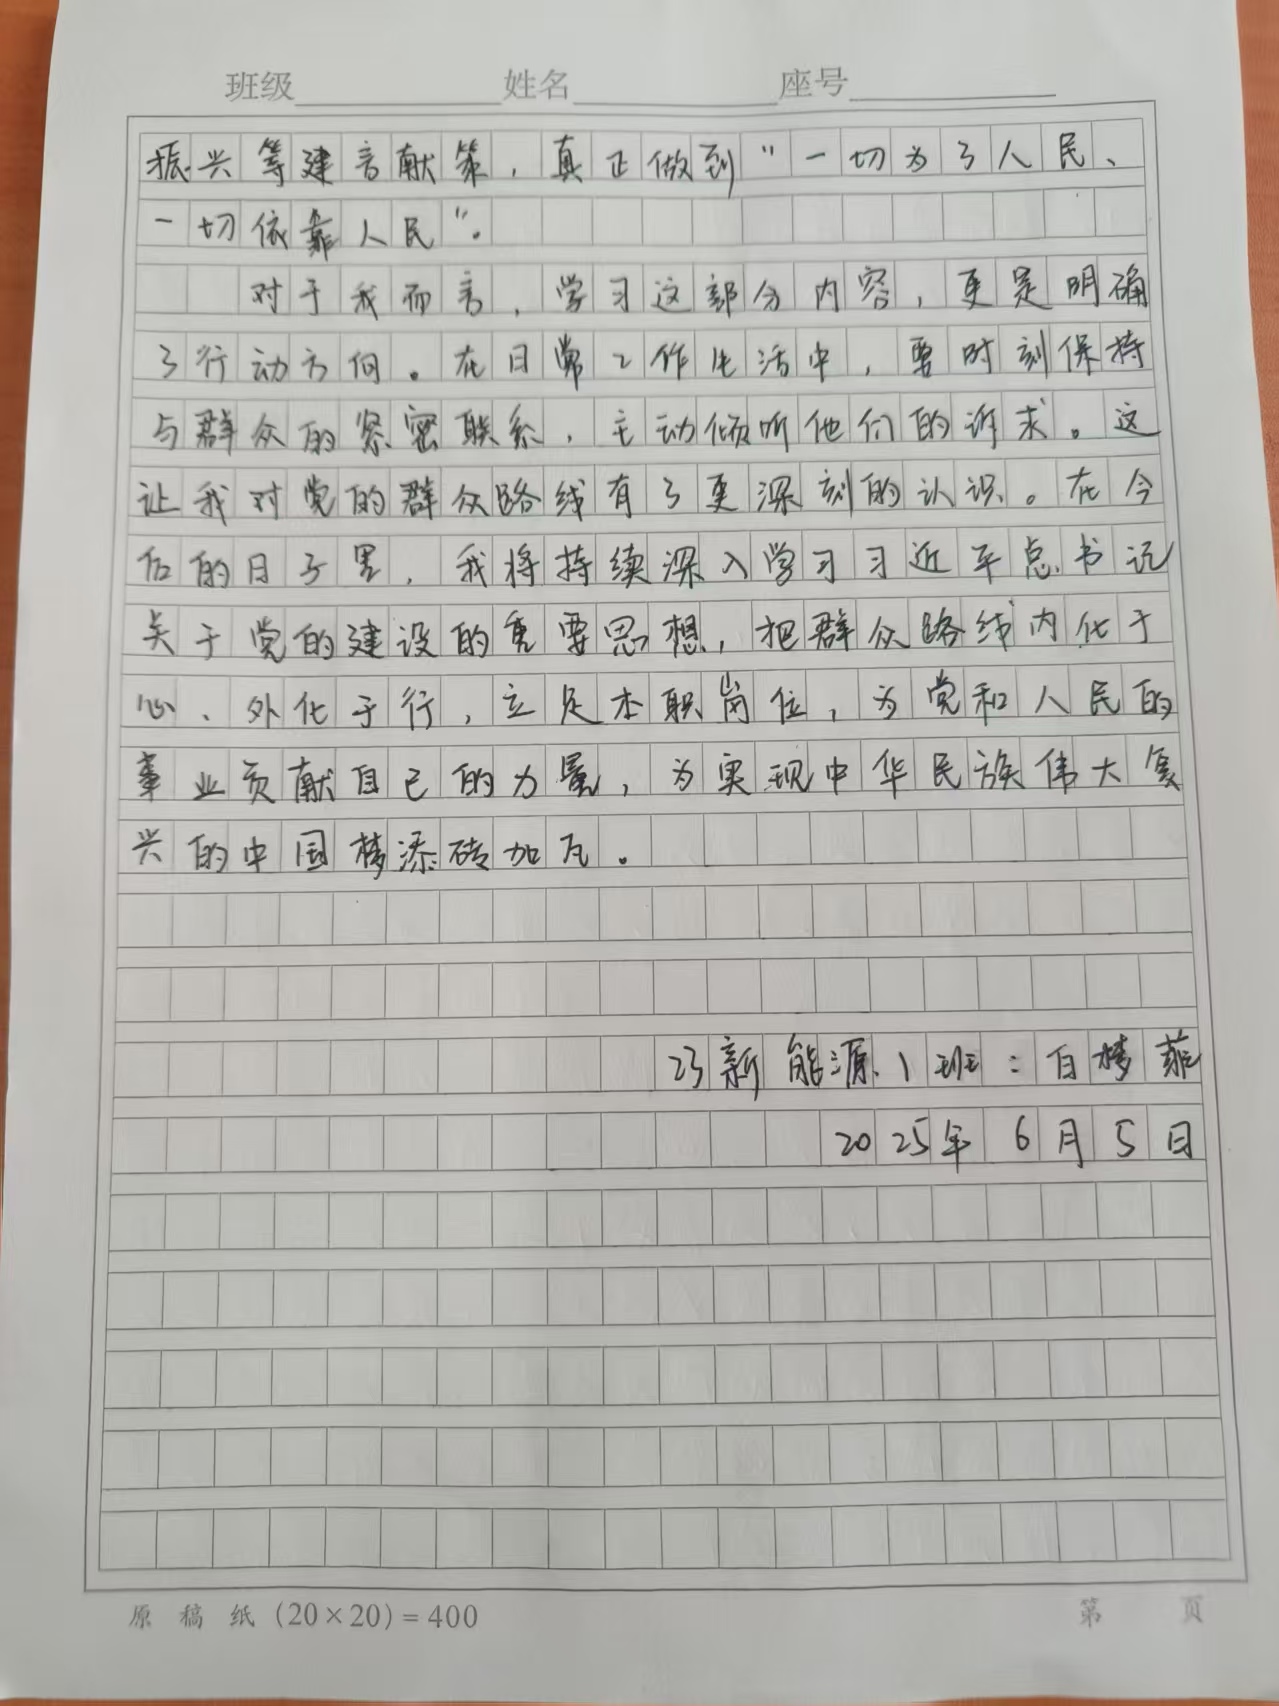 班级 姓名 座号
振兴等建言献策，真正做到“一切为了人民、
一切依靠人民”。
对于我而言，学习这部分内容，更是明确
了行动方向。在日常工作生活中，要时刻保持
与群众的紧密联系，主动倾听他们的诉求。这
让我对党的群众路线有了更深刻的认识。在今
后的日子里，我将持续深入学习习近平总书记
关于党的建设的重要思想，把群众路线内化于
心、外化于行，立足本职岗位，为党和人民的
事业贡献自己的力量，为实现中华民族伟大复
兴的中国梦添砖加瓦。
23新能源1班：白梦菲
2025年6月5日
原稿纸(20×20)=400 第 页